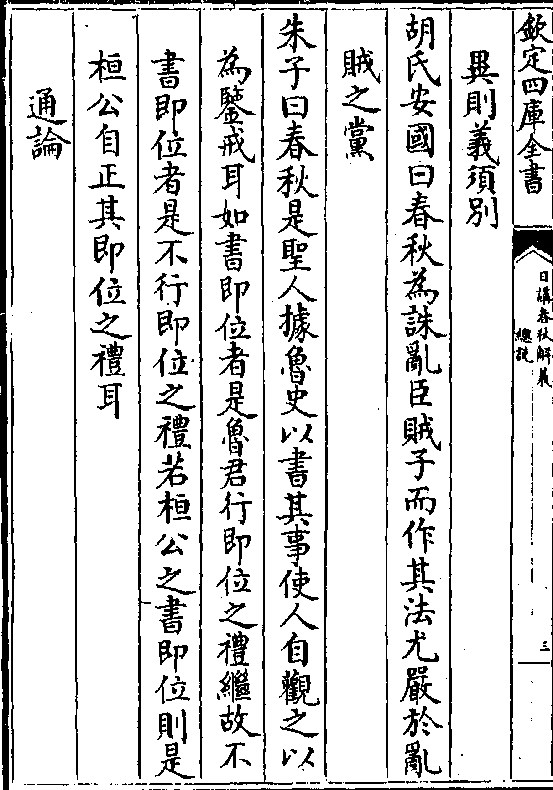 欽定四庫全書
日講春秋解義
總說
三
異則義須別
胡氏安國曰春秋為誅亂臣賊子而作其法尤嚴於亂
賊之黨
朱子曰春秋是聖人據魯史以書其事使人自觀之以
為鑒戒耳如書即位者是魯君行即位之禮繼故不
書即位者是不行即位之禮若桓公之書即位則是
桓公自正其即位之禮耳
通論